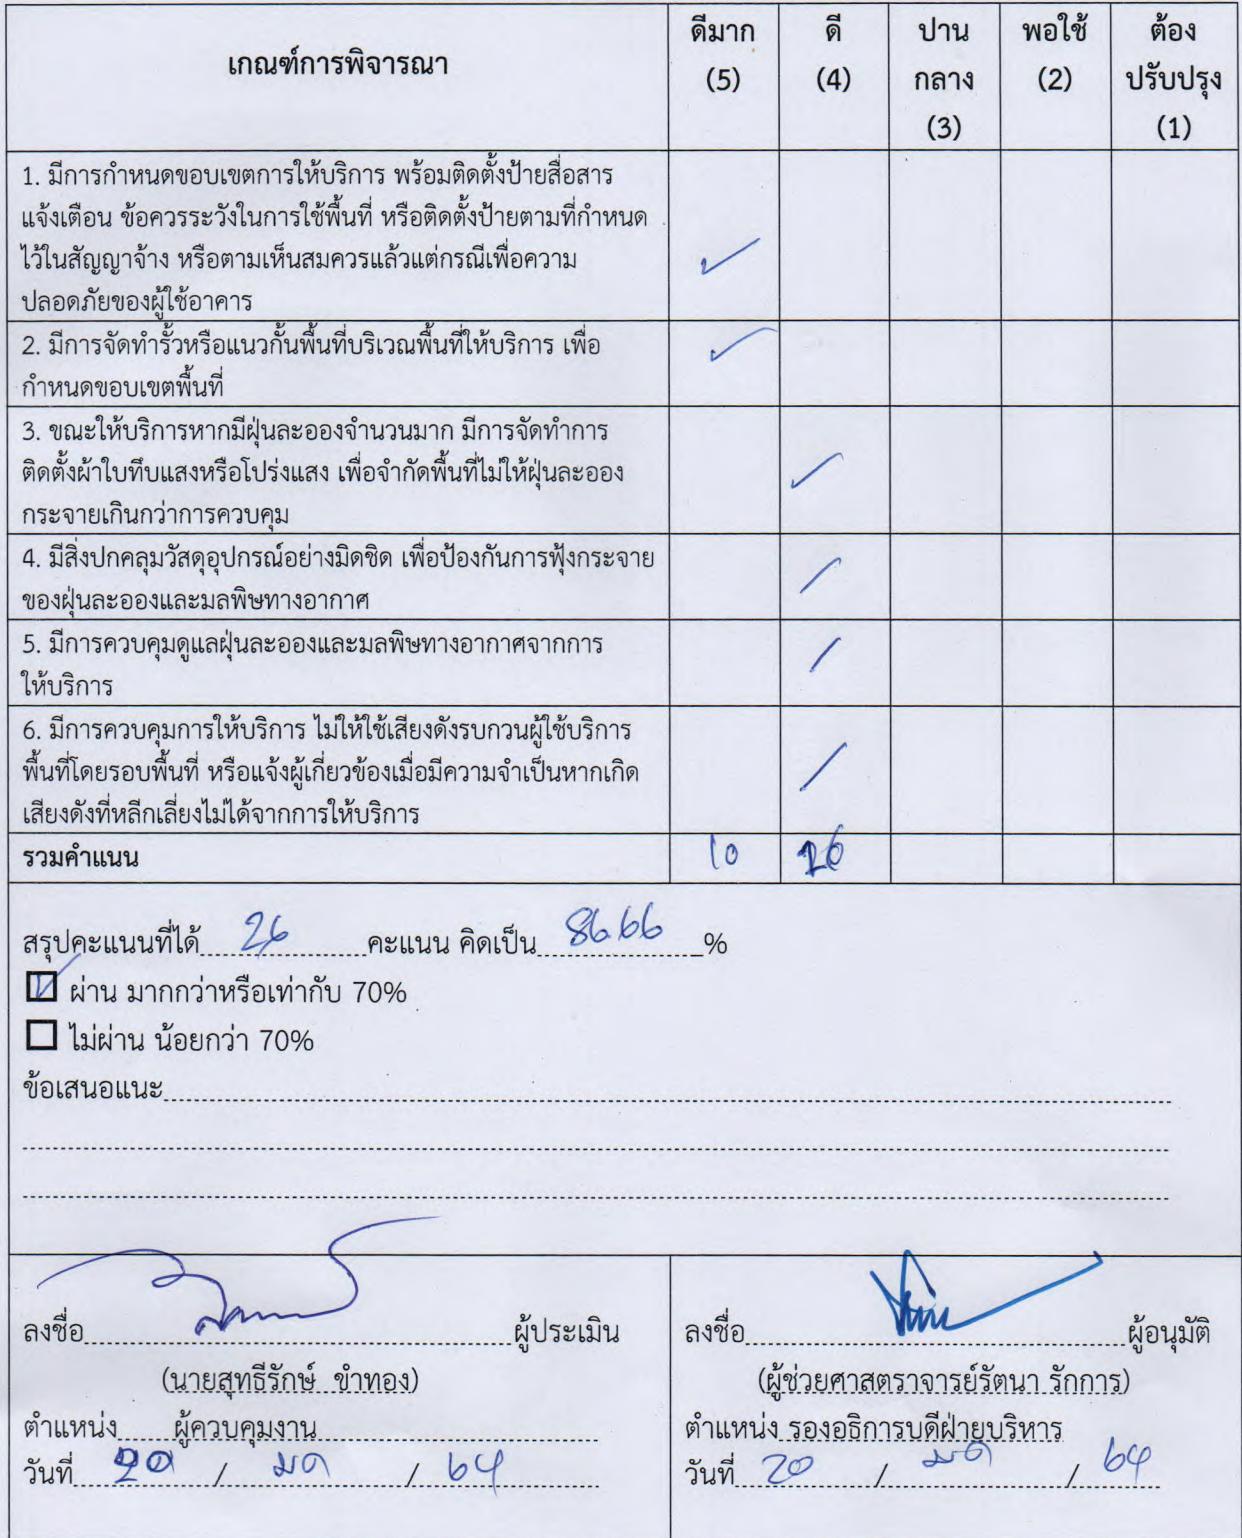 เกณฑ์การพิจารณา
ดีมาก
(5)
ดี
(4)
ปาน
กลาง
(3)
พอใช้
(2)
ต้อง
ปรับปรุง
(1)
1. มีการกำหนดขอบเขตการให้บริการ พร้อมติดตั้งป้ายสื่อสาร
แจ้งเตือน ข้อควรระวังในการใช้พื้นที่ หรือติดตั้งป้ายตามที่กำหนด
ไว้ในสัญญาจ้าง หรือตามเห็นสมควรแล้วแต่กรณีเพื่อความ
ปลอดภัยของผู้ใช้อาคาร
2. มีการจัดทำรั้วหรือแนวกั้นพื้นที่บริเวณพื้นที่ให้บริการ เพื่อ
กำหนดขอบเขตพื้นที่
3. ขณะให้บริการหากมีฝุ่นละอองจำนวนมาก มีการจัดทำการ
ติดตั้งผ้าใบทึบแสงหรือโปร่งแสง เพื่อจำกัดพื้นที่ไม่ให้ฝุ่นละออง
กระจายเกินกว่าการควบคุม
4. มีสิ่งปกคลุมวัสดุอุปกรณ์อย่างมิดชิด เพื่อป้องกันการฟุ้งกระจาย
ของฝุ่นละอองและมลพิษทางอากาศ
5. มีการควบคุมดูแลฝุ่นละอองและมลพิษทางอากาศจากการ
ให้บริการ
6. มีการควบคุมการให้บริการ ไม่ให้ใช้เสียงดังรบกวนผู้ใช้บริการ
พื้นที่โดยรอบพื้นที่ หรือแจ้งผู้เกี่ยวข้องเมื่อมีความจำเป็นหากเกิด
เสียงดังที่หลีกเลี่ยงไม่ได้จากการให้บริการ
รวมคำแนน 10
สรุปคะแนนที่ได้ 26 คะแนน คิดเป็น 86.66 %
ผ่าน มากกว่าหรือเท่ากับ 70%
ไม่ผ่าน น้อยกว่า 70%
ข้อเสนอแนะ
ลงชื่อ ผู้ประเมิน
(นายสุทธีรักษ์ ขำทอง)
ตำแหน่ง ผู้ควบคุมงาน
วันที่ 20 / มค / 64
ลงชื่อ ผู้อนุมัติ
(ผู้ช่วยศาสตราจารย์รัตนา รักการ)
ตำแหน่ง รองอธิการบดีฝ่ายบริหาร
วันที่ 20 / มค / 64